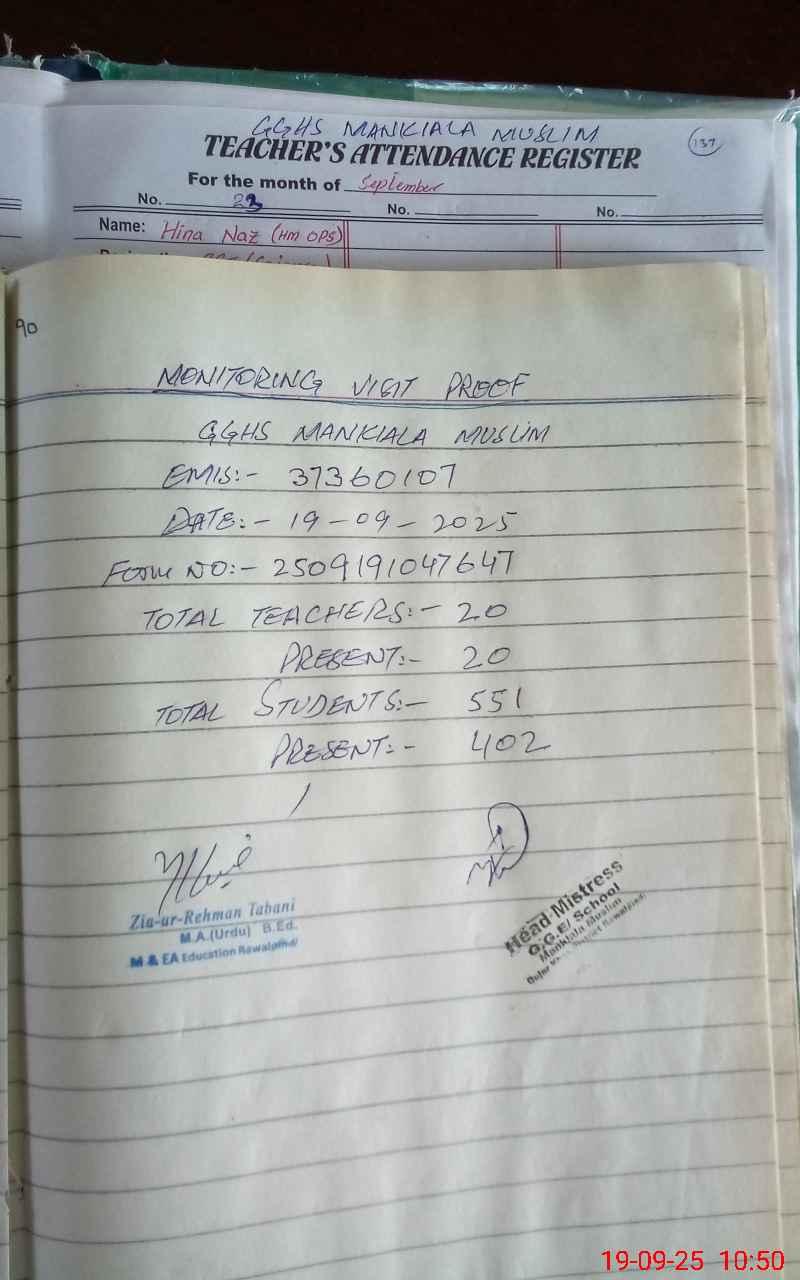 GGHS MANKIALA MUSLIM
137
TEACHER'S ATTENDANCE REGISTER
For the month of September
No. 23 No. No.
Name: Hina Naz (HM OPS)
90
MONITORING VISIT PROOF
GGHS MANKIALA MUSLIM
EMIS:- 37360107
DATE:- 19-09-2025
Form NO:- 2509191047647
TOTAL TEACHERS:- 20
PRESENT:- 20
TOTAL STUDENTS:- 551
PRESENT:- 402
Zia-ur-Rehman Tabani
M.A.(Urdu) B.Ed.
M & EA Education Rawalpindi
Head Mistress
G.G.E/ School
Mankiala Muslim
19-09-25 10:50